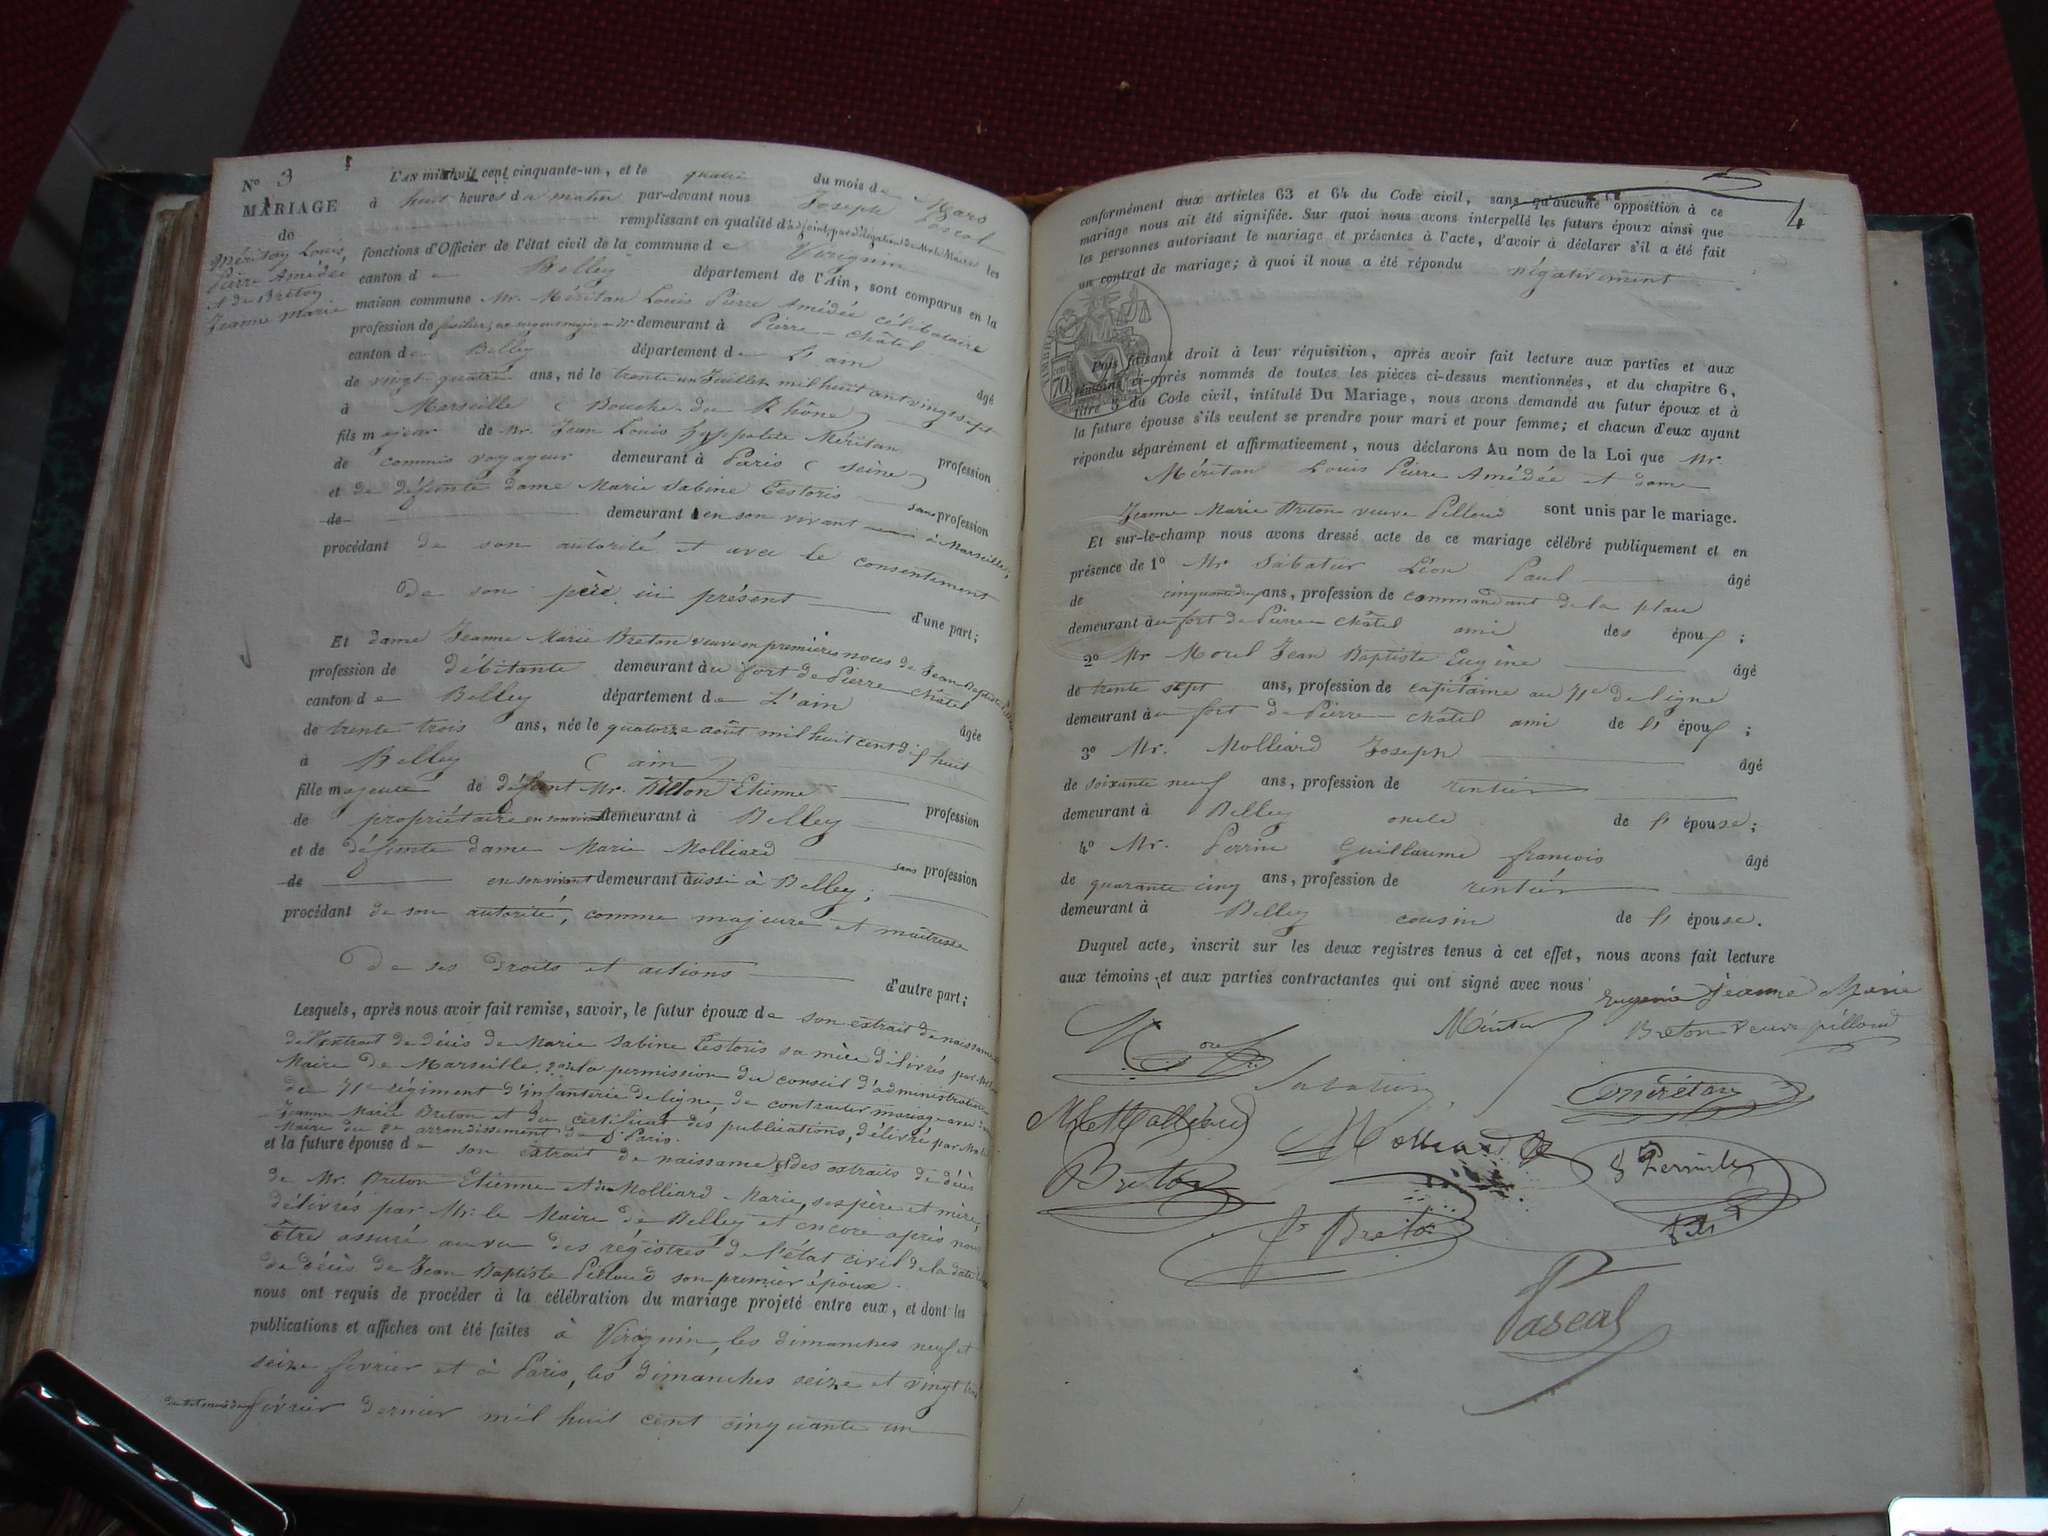 N° 3
MARIAGE
de
Méritan Louis,
Pierre Amédée
et de Breton
Jeanne Marie
L'AN mil huit cent cinquante-un, et le quatre du mois de Mars
à huit heures du matin par-devant nous Joseph Pascal
remplissant en qualité d'adjoint, par délégation de Mr le Maire les
fonctions d'Officier de l'état civil de la commune de Virignin
canton de Belley département de l'Ain, sont comparus en la
maison commune Mr. Méritan Louis Pierre Amédée célibataire
profession de fusilier, demeurant à Pierre-Châtel
canton de Belley département de L'ain âgé
de vingt-quatre ans, né le trente un Juillet mil huit cent vingt sept
à Marseille (Bouche-du Rhône)
fils majeur de Mr. Jean Louis hyppolite Méritan profession
de commis voyageur demeurant à Paris (seine)
et de défunte dame Marie Sabine Testoris sans profession
de demeurant en son vivant à Marseille,
procédant de son autorité et avec le consentement
de son père ici présent d'une part;
Et dame Jeanne Marie Breton veuve en premières noces de Jean Baptiste
profession de débitante demeurant au fort de Pierre-Châtel
canton de Belley département de L'ain âgée
de trente trois ans, née le quatorze août mil huit cent dix huit
à Belley (ain)
fille majeure de défunt Mr. Breton Etienne profession
de propriétaire en son vivant demeurant à Belley
et de défunte dame Marie Molliard sans profession
de en son vivant demeurant aussi à Belley;
procédant de son autorité, comme majeure et maitresse
de ses droits et actions d'autre part;
Lesquels, après nous avoir fait remise, savoir, le futur époux de son extrait de naissance
de l'extrait de décès de Marie Sabine Testoris sa mère délivrés par Mr le
Maire de Marseille, de la permission du conseil d'administration
du 71e régiment d'infanterie de ligne, de contracter mariage avec dame
Jeanne Marie Breton et du certificat des publications, délivré par Mr le
Maire du 8e arrondissement de Paris.
et la future épouse de son extrait de naissance, des extraits de décès
de Mr. Breton Etienne et de Molliard Marie, ses père et mère,
délivrés par Mr. le Maire de Belley et encore après nous
être assuré au vu des régistres de l'état civil de la date
de décès de Jean Baptiste Pilloud son premier époux.
nous ont requis de procéder à la célébration du mariage projeté entre eux, et dont les
publications et affiches ont été faites à Virignin, les dimanches neuf et
seize février et à Paris, les dimanches seize et vingt trois
février dernier mil huit cent cinquante un
4
conformément aux articles 63 et 64 du Code civil, sans qu'aucune opposition à ce
mariage nous ait été signifiée. Sur quoi nous avons interpellé les futurs époux ainsi que
les personnes autorisant le mariage et présentes à l'acte, d'avoir à déclarer s'il a été fait
un contrat de mariage; à quoi il nous a été répondu négativement
TIMBRE
70
Puis faisant droit à leur réquisition, après avoir fait lecture aux parties et aux
témoins ci-après nommés de toutes les pièces ci-dessus mentionnées, et du chapitre 6,
titre 5 du Code civil, intitulé Du Mariage, nous avons demandé au futur époux et à
la future épouse s'ils veulent se prendre pour mari et pour femme; et chacun d'eux ayant
répondu séparément et affirmaticement, nous déclarons Au nom de la Loi que Mr.
Méritan Louis Pierre Amédée et dame
Jeanne Marie Breton veuve Pilloud sont unis par le mariage.
Et sur-le-champ nous avons dressé acte de ce mariage célébré publiquement et en
présence de 1° Mr Sabatier Léon Paul âgé
de cinquante deux ans, profession de commandant de la place
demeurant au fort de Pierre-Châtel ami des époux;
2° Mr Morel Jean Baptiste Eugène âgé
de trente sept ans, profession de capitaine au 71e de ligne
demeurant au fort de Pierre-Châtel ami de ls époux;
3° Mr. Molliard Joseph âgé
de soixante neuf ans, profession de rentier
demeurant à Belley oncle de l'épouse;
4° Mr. Perrin Guillaume françois âgé
de quarante cinq ans, profession de rentier
demeurant à Belley cousin de l'épouse.
Duquel acte, inscrit sur les deux registres tenus à cet effet, nous avons fait lecture
aux témoins et aux parties contractantes qui ont signé avec nous
Jeanne Marie
Méritan Breton veuve pilloud
Morel
Sabatier
Molliard
Breton
Breton
Pascal